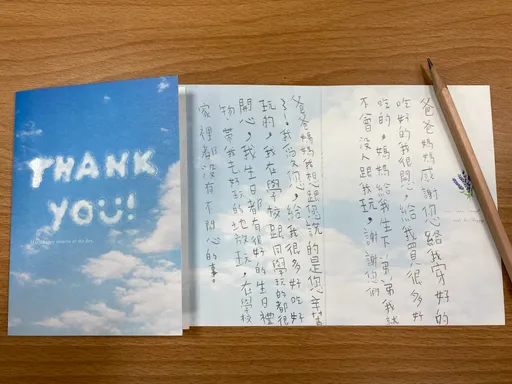 THANK
YOU!
爸爸媽媽感謝您給我穿好的
吃好的我很開心給我買很多好
吃的,媽媽給我生下弟弟我就
不會沒人跟我玩,謝謝您們
爸爸媽媽我想跟您說的是您辛苦
了!我愛您,給我很多好吃好
玩的,我在學校跟同學玩的都很
開心,我生日都有很好的生日禮
物,帶我去好玩的地放玩,在學校
家裡都沒有不開心的事。